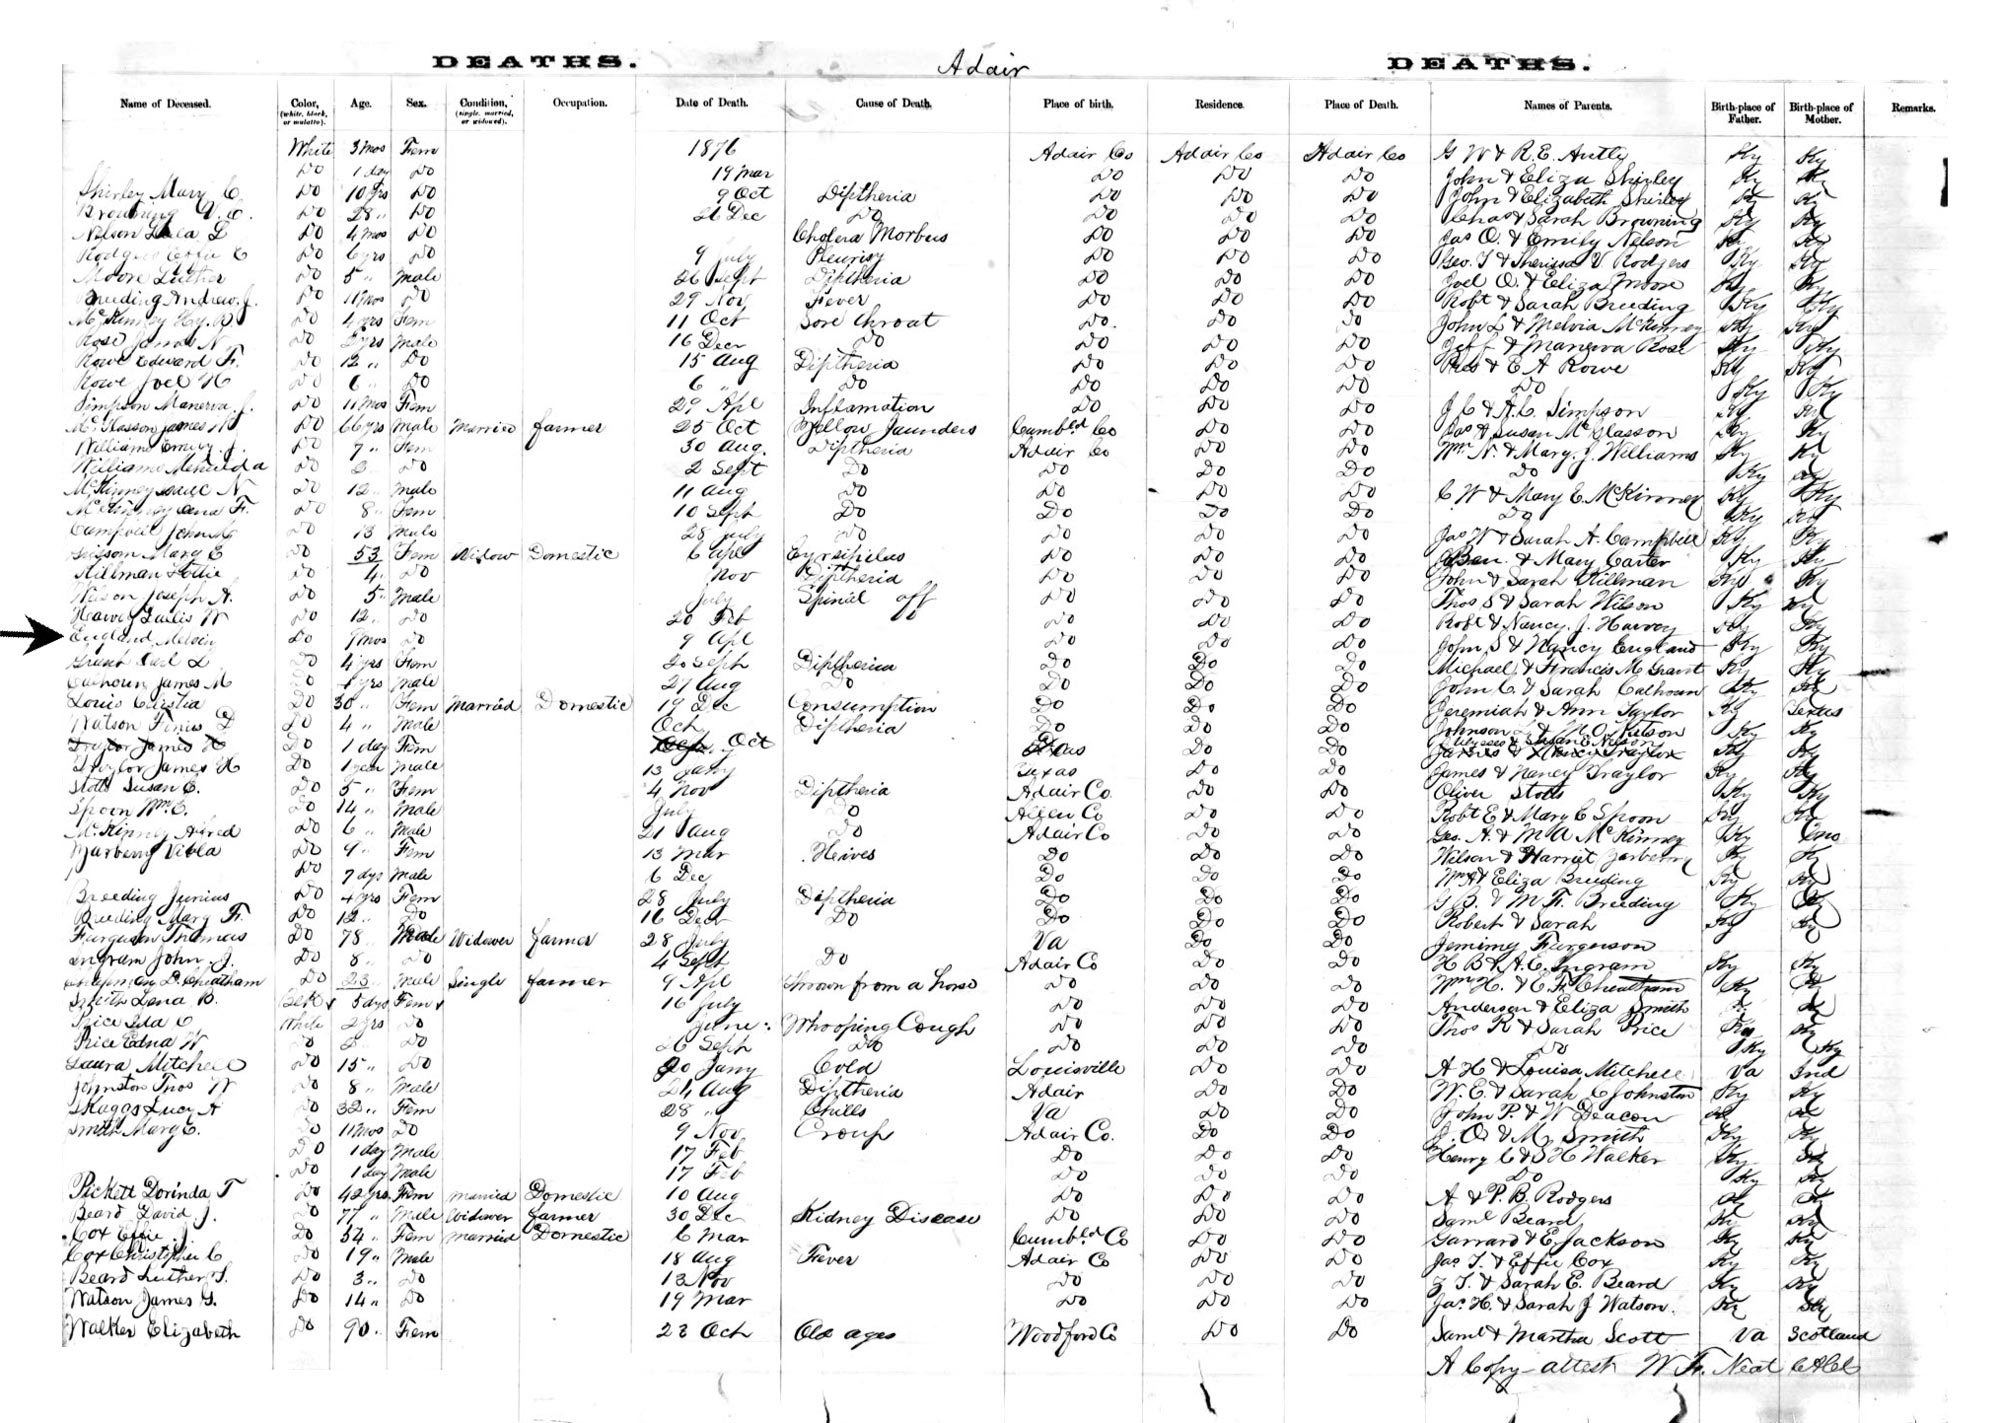 DEATHS. Adair DEATHS.
Name of Deceased. Color, (white, black, or mulatto). Age. Sex. Condition, (single, married, or widowed). Occupation. Date of Death. Cause of Death. Place of birth. Residence. Place of Death. Names of Parents. Birth-place of Father. Birth-place of Mother. Remarks.
White 3 mos Fem 1876 Adair Co Adair Co Adair Co G W & R. E. Antle Ky Ky
Do 1 day Do 19 Mar Do Do Do John & Eliza Shirley Ky Ky
Shirley Mary C. Do 10 yrs Do 9 Oct Diptheria Do Do Do John & Elizabeth Shirley Ky Ky
Browning Do 28 " Do 26 Dec Do Do Do Do Chas & Sarah Browning Ky Ky
Nelson L Do 4 mos Do Cholera Morbus Do Do Do Jas O. & Emily Nelson Ky Ky
Rodgers Effie C Do 6 yrs Do 9 July Pleurisy Do Do Do Geo. T & V. Rodgers Ky Ky
Moore Luther Do 5 " Male 26 Sept Diptheria Do Do Do Joel O. & Eliza Moore Ky Ky
Breeding Andrew J. Do 11 mos Do 29 Nov Fever Do Do Do Robt & Sarah Breeding Ky Ky
McKinney Hy. Do yrs Fem 11 Oct Sore throat Do. Do Do John L & Melvia McKinney Ky Ky
Rose James N Do yrs Male 16 Decr Do Do Do Do Jeff & Manerva Rose Ky Ky
Rowe Edward F. Do 12 " Do 15 Aug Diptheria Do Do Do & E A Rowe Ky Ky
Rowe Joel H Do 6 " Do 6 " Do Do Do Do Do Ky Ky
Simpson Manerva J. Do 11 mos Fem 29 Apl Inflamation Do Do Do J. C & A. C. Simpson Ky Ky
McGlasson James W Do 66 yrs Male Married farmer 25 Oct Yellow Jaunders Cumbld Co Do Do Jas & Susan McGlasson Ky Ky
Williams Emily J. Do 7 " Fem 30 Aug. Diptheria Adair Co Do Do Wm N. & Mary J. Williams Ky Ky
Williams Do 2 " Do 2 Sept Do Do Do Do Do Ky Ky
McKinney Isaac N Do 12 " Male 11 Aug Do Do Do Do C W & Mary E. McKinney Ky Ky
McKinney F. Do 8 " Fem 10 Sept Do Do Do Do Do Ky Ky
Campbell John Do 13 Male 28 July Do Do Do Do Jas W & Sarah A. Campbell Ky Ky
Mary E Do 53 Fem Widow Domestic 6 Apl Do Do Do Ben. & Mary Carter Ky Ky
Hillman Lottie Do 4 " Do Nov Diptheria Do Do Do John & Sarah Hillman Ky
Wilson Joseph A. Do 5 " Male July Spinel aff Do Do Do Thos S & Sarah Wilson Ky Ky
Harvey W Do 12 " Do 20 Feb Do Do Do Robt & Nancy J. Harvey Ky Ky
England Melvin Do 9 mos Do 9 Apl Do Do Do John S & Nancy England Ky Ky
Grant L. Do 4 yrs Fem 20 Sept Diptheria Do Do Do Michael & Francis M Grant Ky Ky
Calhoun James M Do yrs Male 27 Aug Do Do Do Do John C & Sarah Calhoun Ky Ky
Louis Do 30 " Fem Married Domestic 19 Dec Consumption Do Do Do Jeremiah & Ann Taylor Ky Texas
Watson Finis D Do 4 " Male Oct Diptheria Do Do Do Johnson L & M. O. Watson Ky Ky
Traylor James H Do 1 day Fem Oct Do Do Ulysses & Susan E Nelson Ky Ky
Traylor James H Do 1 year Male 13 Jany Texas Do Do James & Nancy Traylor Ky Ky
Stotts Susan E. Do 5 " Fem 4 Nov Diptheria Adair Co. Do Do Oliver Stotts Ky Ky
Spoon Wm C. Do 14 " Male July Do Allen Co Do Do Robt E & Mary C Spoon Ky Ky
McKinney Alfred Do 6 " Male 21 Aug Do Adair Co Do Do Geo. A. & M A McKinney Ky
Yarberry Do 9 " Fem 13 Mar Heives Do Do Do Wilson & Harriet Yarberry Ky Ky
Do 7 dys Male 6 Dec Do Do Do Wm & Eliza Breeding Ky Ky
Breeding Junius Do 4 yrs Fem 28 July Diptheria Do Do Do G B. & M. F. Breeding Ky Ky
Breeding Mary F. Do 12 " Do 16 Decr Do Do Do Do Robert & Sarah Ky Ky
Furguson Thomas Do 78 " Male Widower farmer 28 July Va Do Do Jemimy Furgerson
Ingram John J. Do 8 " Do 4 Sept Do Adair Co Do Do H B & A. E. Ingram Ky Ky
D. Cheatham Do 23 " Male Single farmer 9 Apl Thrown from a horse Do Do Do Wm H. & E. F. Cheatham Ky Ky
Smith Lena B. 5 days Fem 16 July Do Do Do Anderson & Eliza Smith
Price Ida C White 2 yrs Do June Whooping Cough Do Do Do Thos R & Sarah Price Ky Ky
Price Edna W Do Do 26 Sept Do Do Do Do Do Ky Ky
Laura Mitchell Do 15 " Do 20 Jany Cold Louisville Do Do A H & Louisa Mitchell Va Ind
Johnston Thos W Do 8 " Male 24 Aug Diptheria Adair Do Do W. E. & Sarah C Johnston Ky Ky
Skaggs Lucy A Do 32 " Fem 28 " Chills Va Do Do John P. & W Deacon
Smith Mary E. Do 11 mos Do 9 Nov Croup Adair Co. Do Do J. O. & M. Smith Ky Ky
Do 1 day Male 17 Feb Do Do Do Henry C & S H Walker Ky Ky
Do 1 day Male 17 Feb Do Do Do Do Ky Ky
Pickett Dorinda T Do 42 yrs Fem Married Domestic 10 Aug Do Do Do A & P. B. Rodgers Ky
Beard David J. Do 77 " Male Widower farmer 30 Dec Kidney Disease Do Do Do Saml Beard Ky Ky
Cox Effie J. Do 34 " Fem Married Domestic 6 Mar Cumbld Co Do Do Garrard & E. Jackson Ky Ky
Cox Christopher C Do 19 " Male 18 Aug Fever Adair Co Do Do Jas T. & Effie Cox Ky Ky
Beard Luther S. Do 3 " Do 13 Nov Do Do Do Z T. & Sarah E. Beard Ky Ky
Watson James G. Do 14 " Do 19 Mar Do Do Do Jas. H. & Sarah J Watson. Ky Ky
Walker Elizabeth Do 90 " Fem 22 Oct Old age Woodford Co Do Do Saml & Martha Scott Va Scotland
A Copy attest W. F. Neat